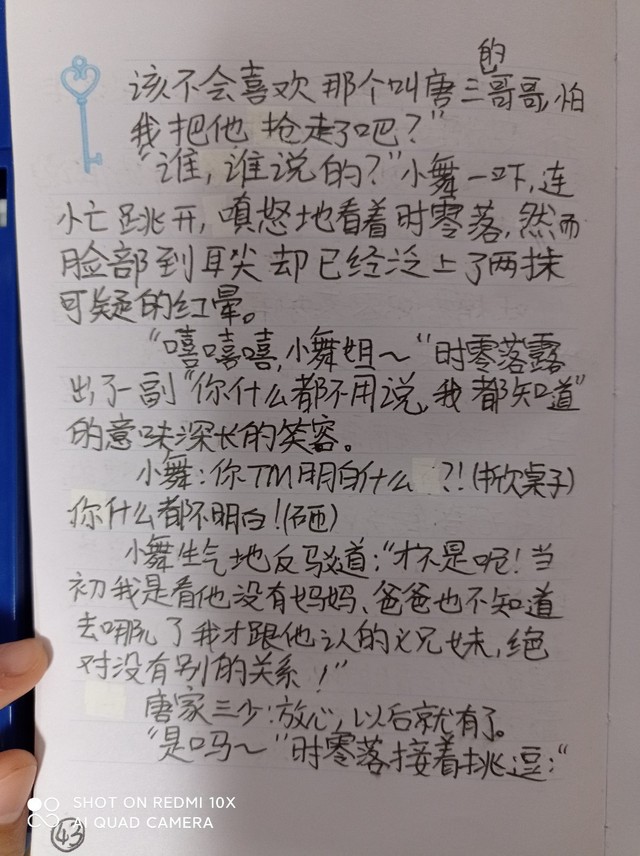 的
该不会喜欢那个叫唐三哥哥,怕
我把他抢走了吧?”
“谁,谁说的?”小舞一吓,连
小亡跳开,嗔怒地看着时零落,然而
脸部到耳尖却已经泛上了两抹
可疑的红晕。
“嘻嘻嘻,小舞姐~“时零落露
出了一副“你什么都不用说,我都知道”
的意味深长的笑容。
小舞:你TM明白什么?!(掀桌子)
你什么都不明白!(砸)
小舞生气地反驳道:“才不是呢!当
初我是看他没有妈妈、爸爸也不知道
去哪儿了我才跟他认的义兄妹,绝
对没有别的关系!”
唐家三少:放心,以后就有了。
“是吗~“时零落接着挑逗:“
SHOT ON REDMI 10X
AI QUAD CAMERA
43